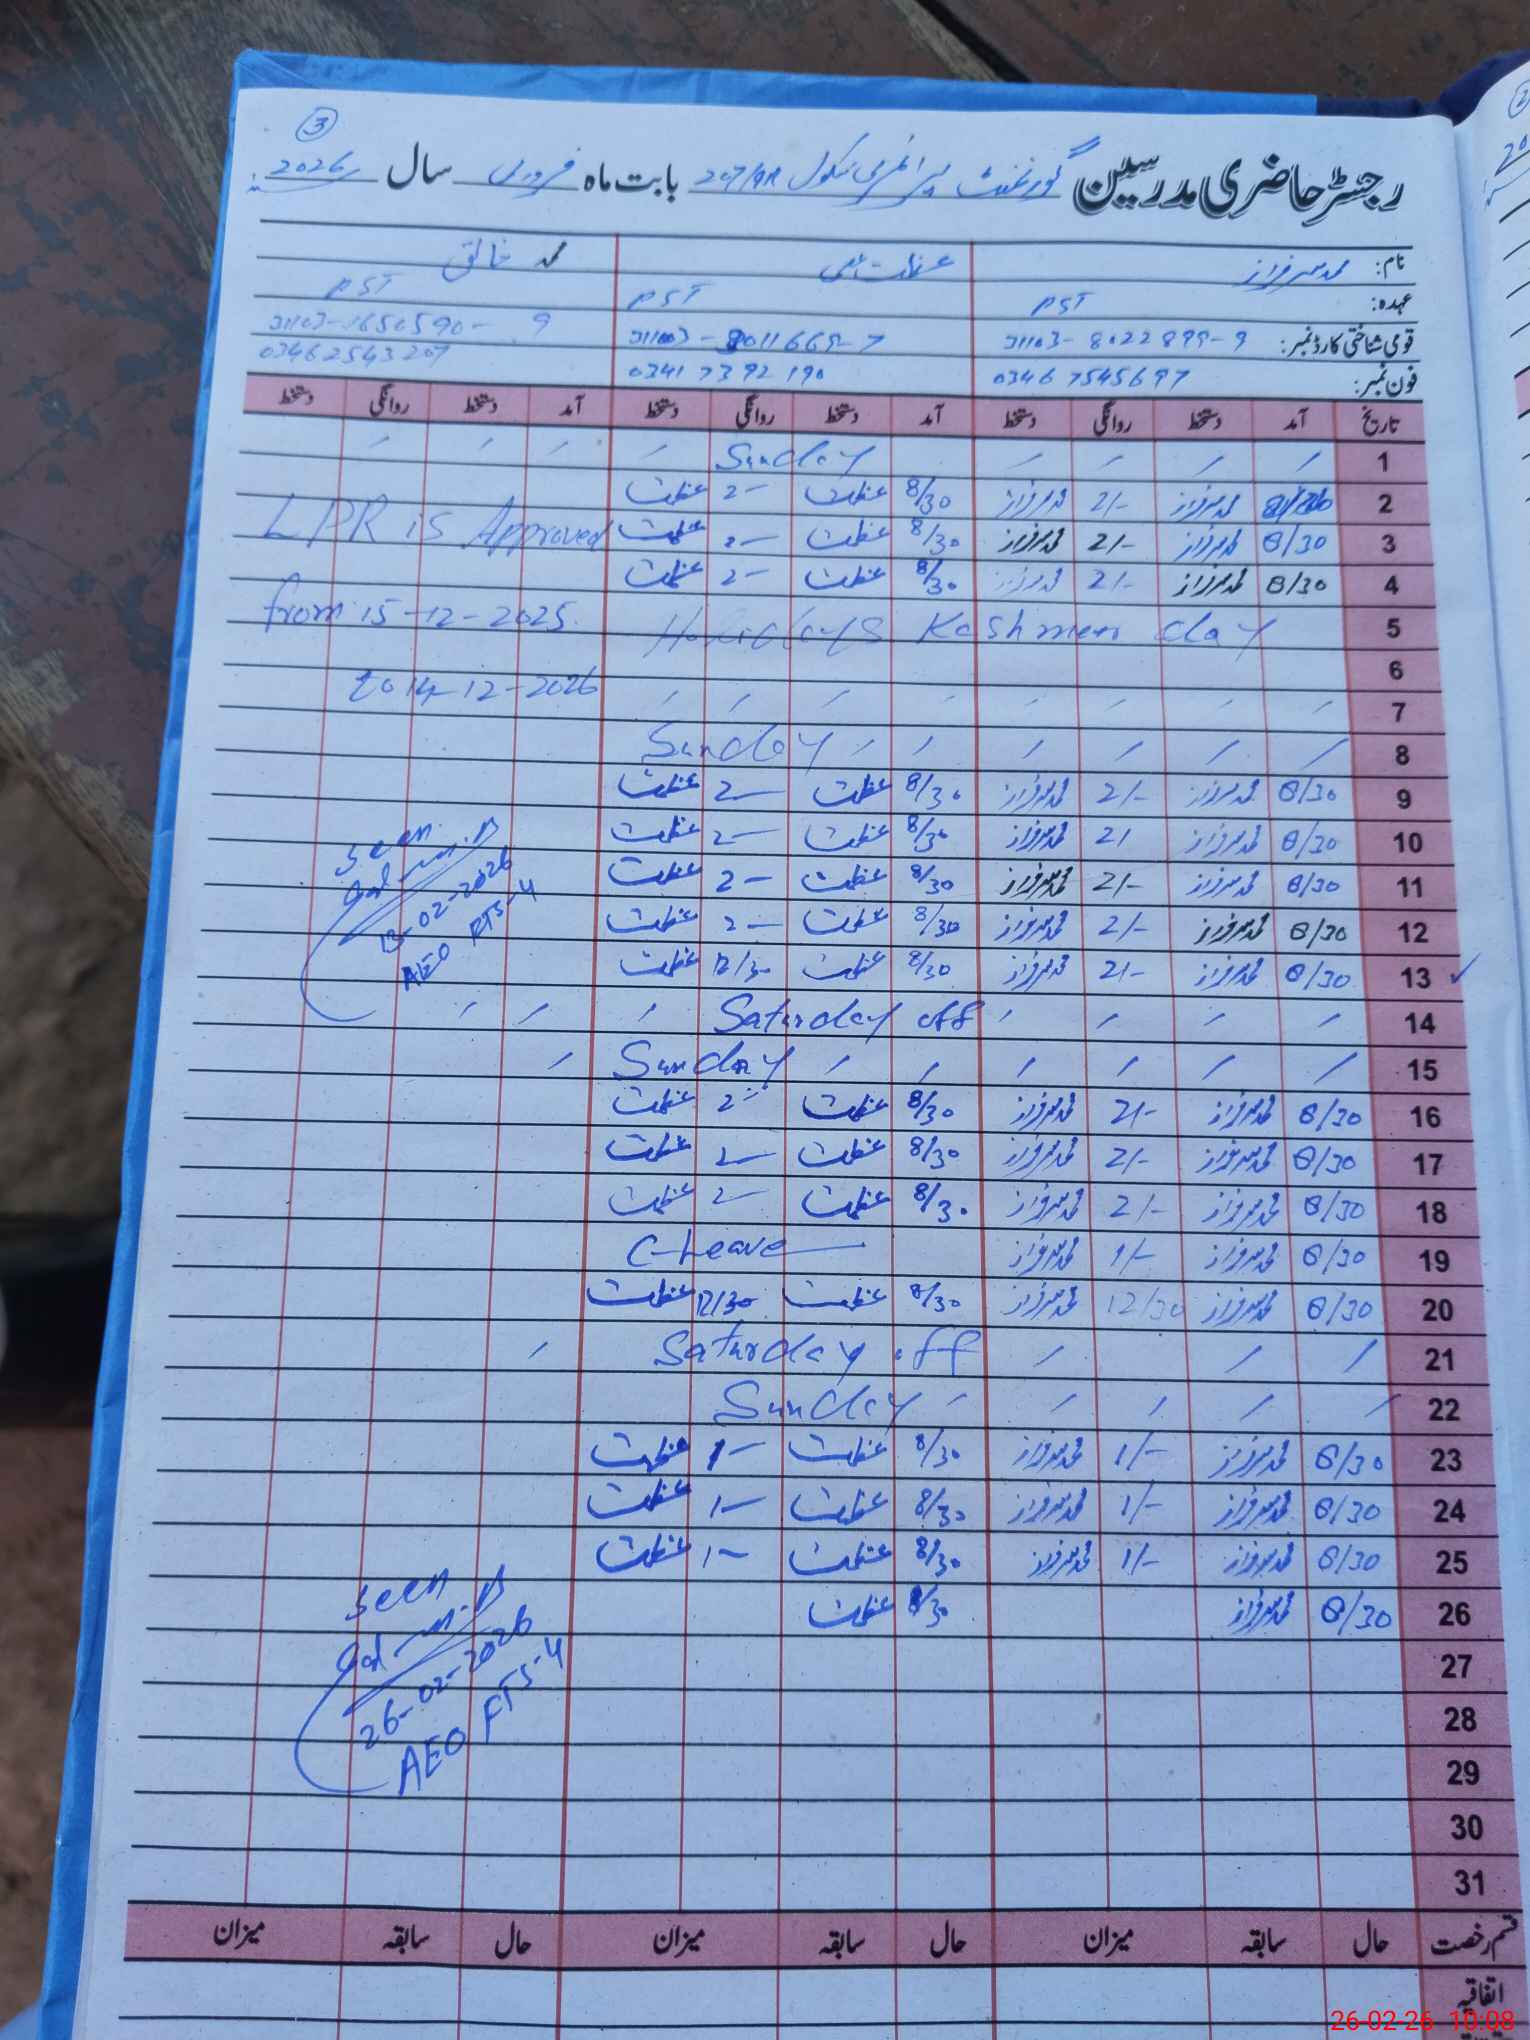 3
رجسٹر حاضری مدرسین گورنمنٹ پرائمری سکول 207/9R بابت ماہ فروری سال 2026
نام: محمد سرفراز عظمت محمد خالق
عہدہ: PST PST PST
قومی شناختی کارڈ نمبر: 31103-8022899-9
فون نمبر: 0346 7545697 0341 7392190 03462543207
تاریخ آمد دستخط روانگی دستخط آمد دستخط روانگی دستخط آمد دستخط روانگی دستخط
1 Sunday
2 محمد سرفراز 2/- محمد سرفراز 8/30 عظمت 2- عظمت
3 8/30 محمد سرفراز 2/- محمد سرفراز 8/30 عظمت 2- عظمت
LPR is Approved
4 8/30 محمد سرفراز 2/- محمد سرفراز 8/30 عظمت 2- عظمت
5 Holidays Kashmeer day
from 15-12-2025
6
to 14-12-2026
7
8 Sunday
9 8/30 محمد سرفراز 2/- محمد سرفراز 8/30 عظمت 2- عظمت
10 8/30 محمد سرفراز 2/ محمد سرفراز 8/30 عظمت 2- عظمت
11 8/30 محمد سرفراز 2/- محمد سرفراز 8/30 عظمت 2- عظمت
12 8/30 محمد سرفراز 2/- محمد سرفراز 8/30 عظمت 2- عظمت
13 8/30 محمد سرفراز 2/- محمد سرفراز 8/30 عظمت 12/30 عظمت
seen
13-02-2026
AEO
14 Saturday off
15 Sunday
16 8/30 محمد سرفراز 2/- محمد سرفراز 8/30 عظمت 2- عظمت
17 8/30 محمد سرفراز 2/- محمد سرفراز 8/30 عظمت 2- عظمت
18 8/30 محمد سرفراز 2/- محمد سرفراز 8/30 عظمت 2- عظمت
19 8/30 محمد سرفراز 1/- محمد سرفراز C-Leave
20 8/30 محمد سرفراز 12/30 محمد سرفراز 8/30 عظمت 12/30 عظمت
21 Saturday off
22 Sunday
23 8/30 محمد سرفراز 1/- محمد سرفراز 8/30 عظمت 1- عظمت
24 8/30 محمد سرفراز 1/- محمد سرفراز 8/30 عظمت 1- عظمت
25 8/30 محمد سرفراز 1/- محمد سرفراز 8/30 عظمت 1- عظمت
26 8/30 محمد سرفراز 8/30 عظمت
seen
26-02-2026
AEO
27
28
29
30
31
قسم رخصت حال سابقہ میزان حال سابقہ میزان حال سابقہ میزان
اتفاقیہ
26-02-26 10:08